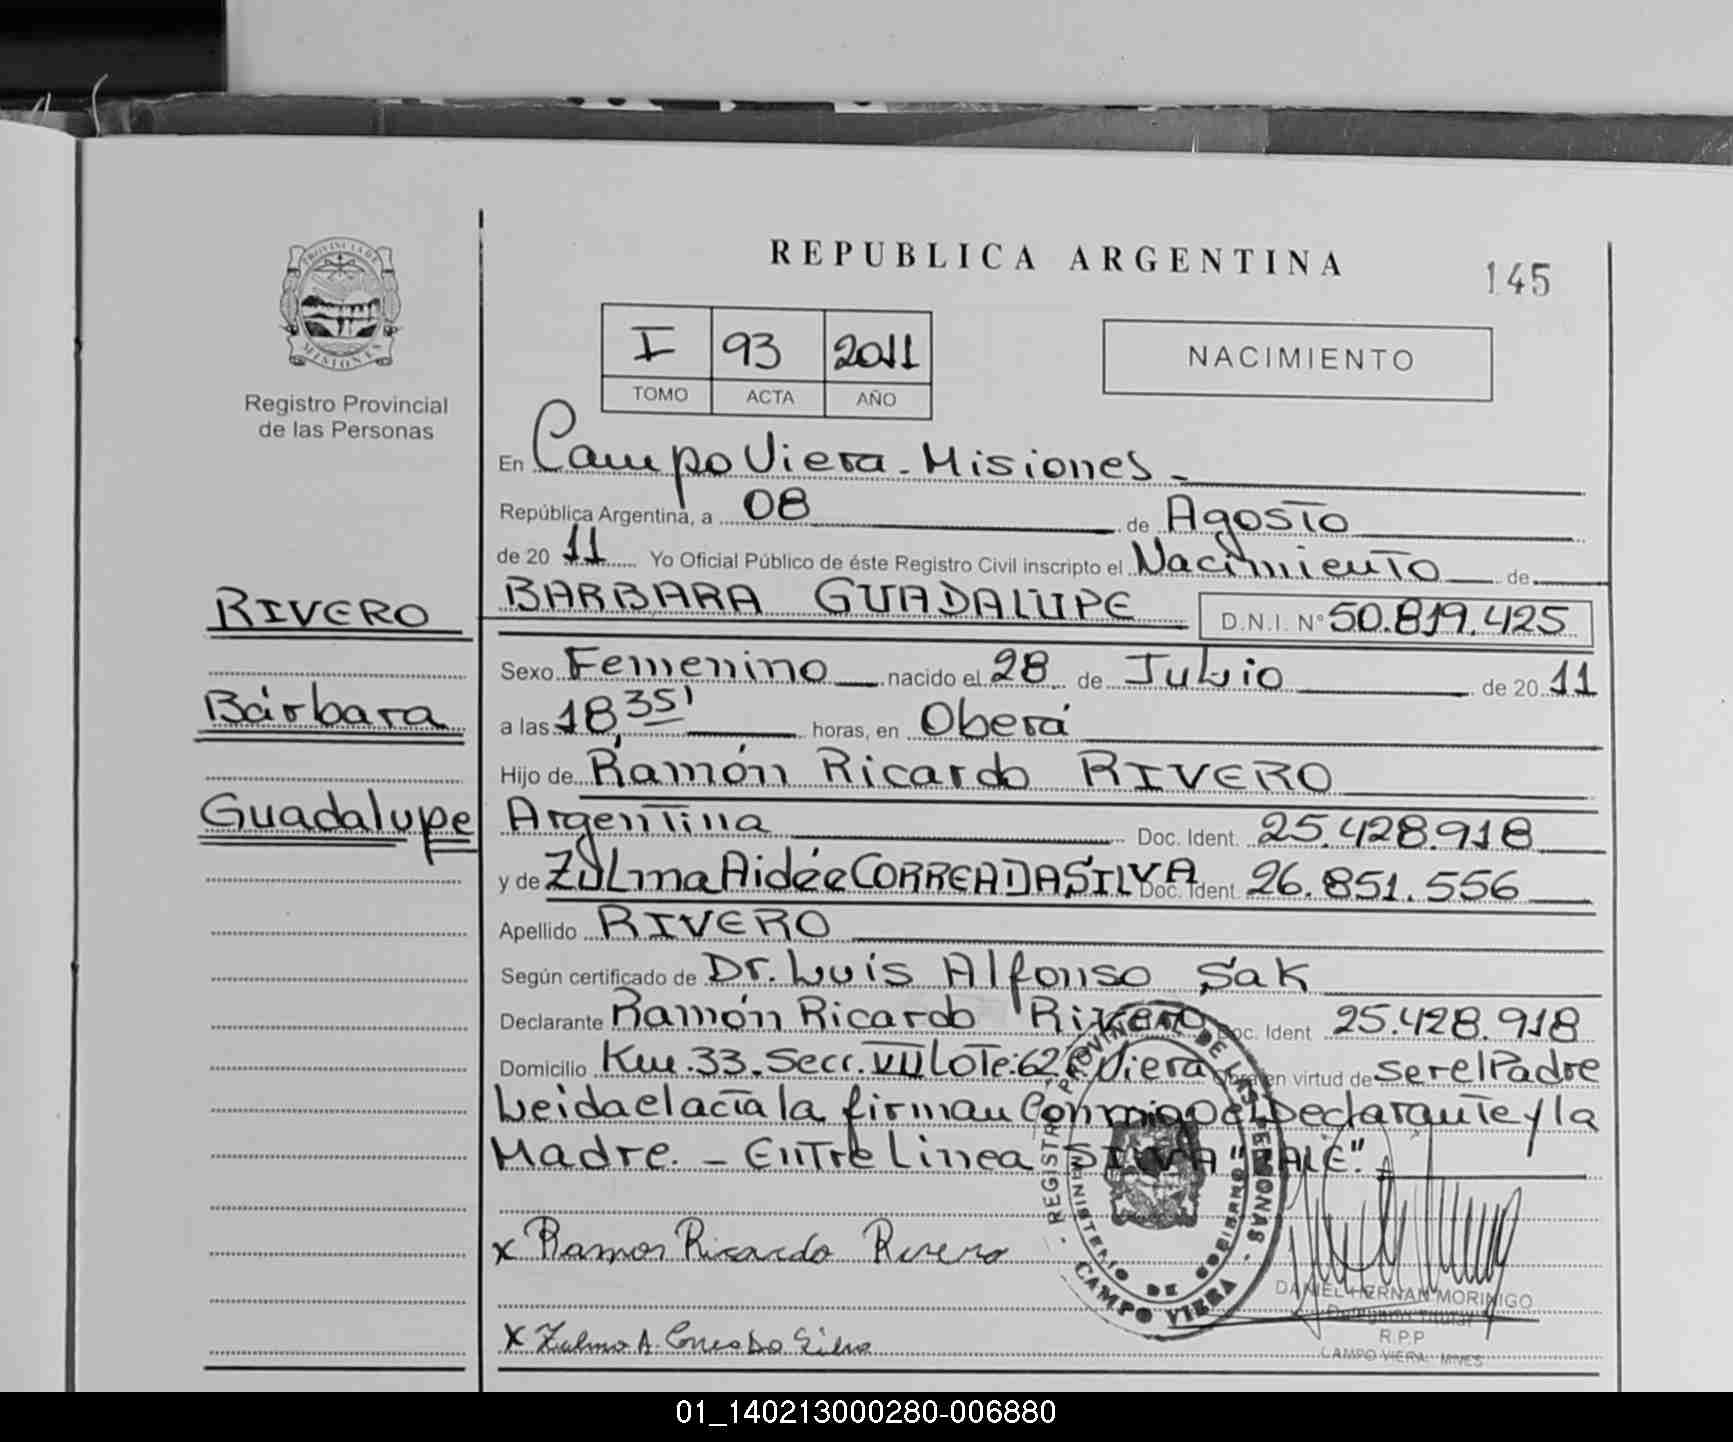 REPUBLICA ARGENTINA
145
PROVINCIA DE
MISIONES
Registro Provincial
de las Personas
I 93 2011
TOMO ACTA AÑO
NACIMIENTO
En Campo Viera - Misiones -
República Argentina, a 08 de Agosto
de 20 11 Yo Oficial Público de éste Registro Civil inscripto el Nacimiento de
BARBARA GUADALUPE D.N.I. N° 50.819.425
RIVERO
Bárbara
Guadalupe
Sexo Femenino nacido el 28 de Julio de 20 11
a las 18,35' horas, en Oberá
Hijo de Ramón Ricardo RIVERO
Argentina Doc. Ident. 25.428.918
y de Zulma Aidée CORREA DA SILVA Doc. Ident. 26.851.556
Apellido RIVERO
Según certificado de Dr. Luis Alfonso Sak
Declarante Ramón Ricardo Rivero Doc. Ident 25.428.918
Domicilio Km.33. Secc. VII Lote:62 C. Viera Obra en virtud de ser el Padre
Leida el acta la firman Conmigo el Declarante y la
Madre. - Entre Linea SILVA "VALE". -
REGISTRO PROVINCIAL DE LAS PERSONAS -
MINISTERIO DE GOBIERNO
CAMPO VIERA
x Ramon Ricardo Rivero
x Zulma A. Correa Da Silva
DANIEL HERNAN MORINIGO
Delegado Titular
R.P.P
CAMPO VIERA. MNES
01_140213000280-006880